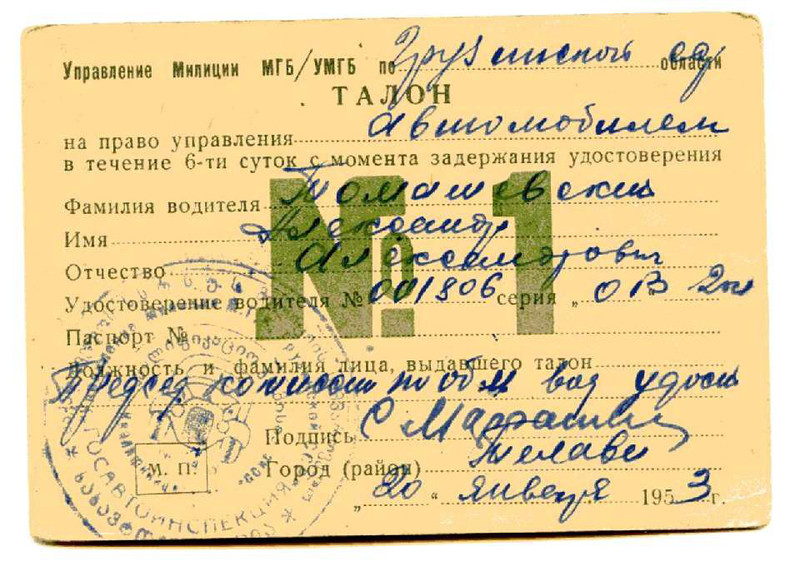 Управление Милиции МГБ/УМГБ по Грузинской ССР области
ТАЛОН
на право управления Автомобилем
в течение 6-ти суток с момента задержания удостоверения
№ 1
Фамилия водителя Томашевский
Имя Александр
Отчество Александрович
Удостоверение водителя № 001806 серия „ОВ
Паспорт №
Должность и фамилия лица, выдавшего талон
Председ комиссии по обм вод удост
Подпись
М. П. Город (район) Телави
„20“ января 1953 г.
ГОСАВТОИНСПЕКЦИЯ